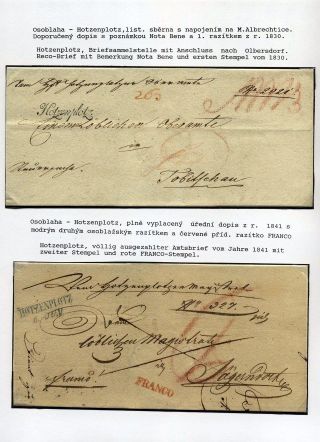 Osoblaha - Hotzenplotz,list. sběrna s napojením na M.Albrechtice.
Doporučený dopis s poznámkou Nota Bene a 1. razítkem z r. 1830.
Hotzenplotz, Briefsammelstelle mit Anschluss nach Olbersdorf.
Reco-Brief mit Bemerkung Nota Bene und ersten Stempel vom 1830.
Hotzenplotz
löblichen Oberamte
in
Tobitschau
Osoblaha - Hotzenplotz, plně vyplacený úřední dopis z r. 1841 s
modrým druhým osoblažským razítkem a červené příd. razítko FRANCO
Hotzenplotz, völlig ausgezahlter Amtsbrief vom Jahre 1841 mit
zweiter Stempel und rote FRANCO-Stempel.
HOTZENPLOTZ
Hotzenplotzer Magistrat
löblichen Magistrate
Jägerndorf
FRANCO